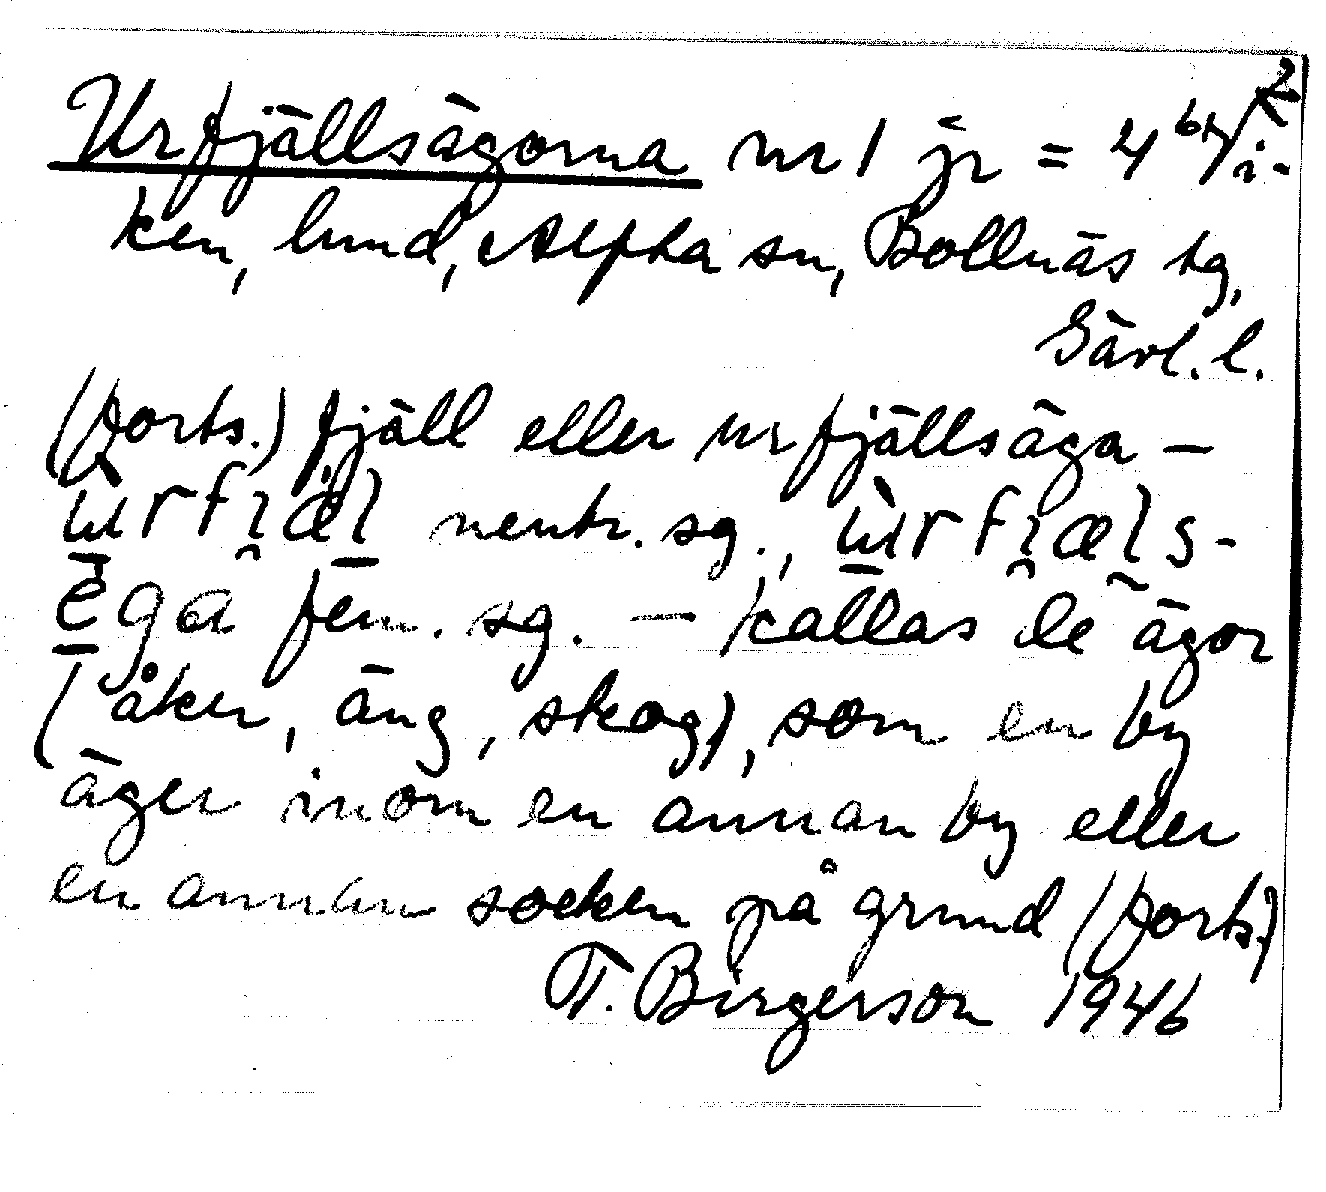 2
Urfjällsägorna nr 1 jr = 4 by i-
ken, lund, Alfta sn, Bollnäs tg,
Gävl. l.
(forts.) fjäll eller urfjällsäga —
ɯ̀rfi̯æl neutr. sg., ɯ̀rfi̯æls-
ega fem. sg. — kallas de ägor
(åker, äng, skog), som en by
äger inom en annan by eller
en annan socken på grund (forts.)
T. Birgerson 1946